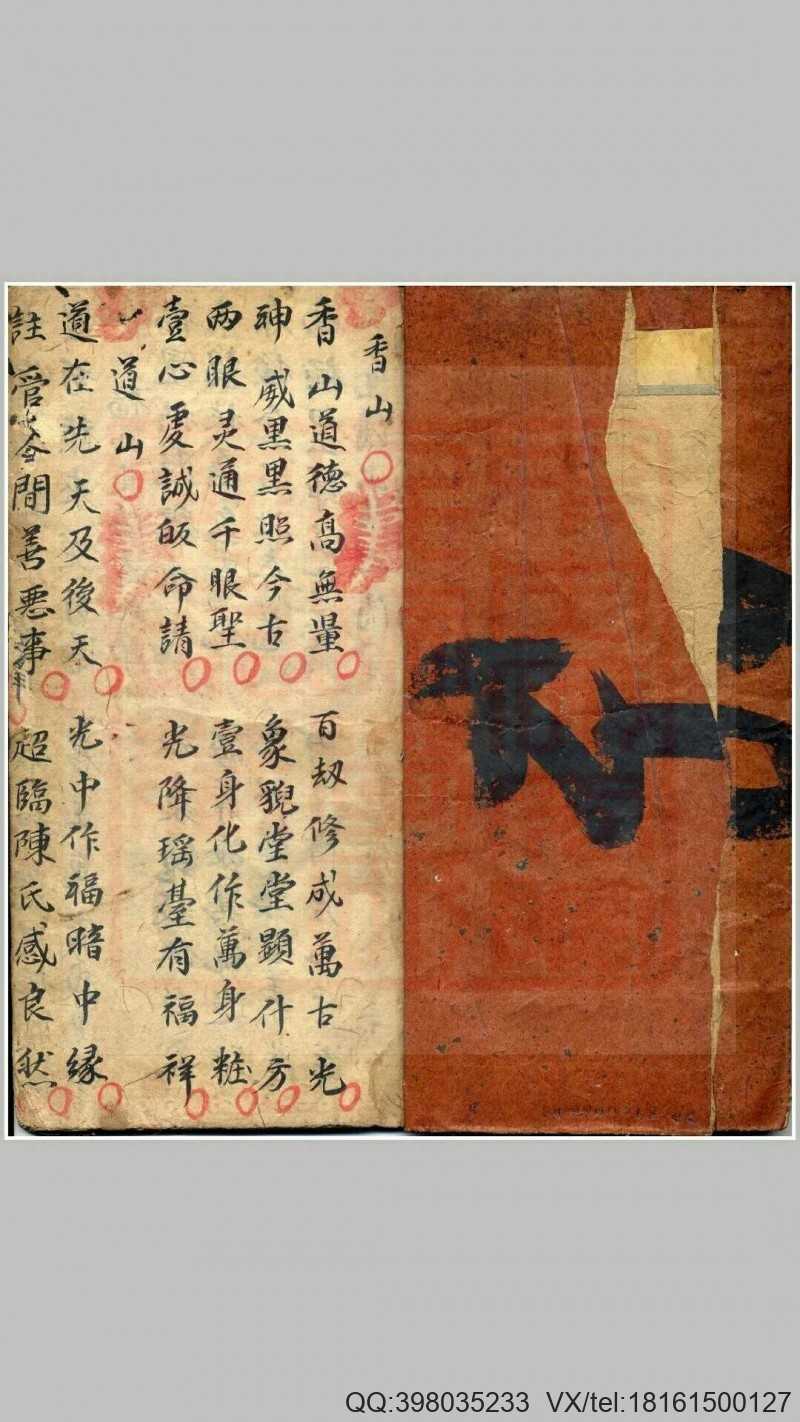 香山
香山道德高無量 百刼修成萬古光
神威黑黑照今古 象貌堂堂顯什方
两眼灵通千眼聖 壹身化作萬身粧
壹心虔誠皈命請 光降瑶臺有福祥
道山
道在先天及後天 光中作福暗中緣
註管 間善恶事 超臨陳氏感良然
QQ:398035233 VX/tel:18161500127